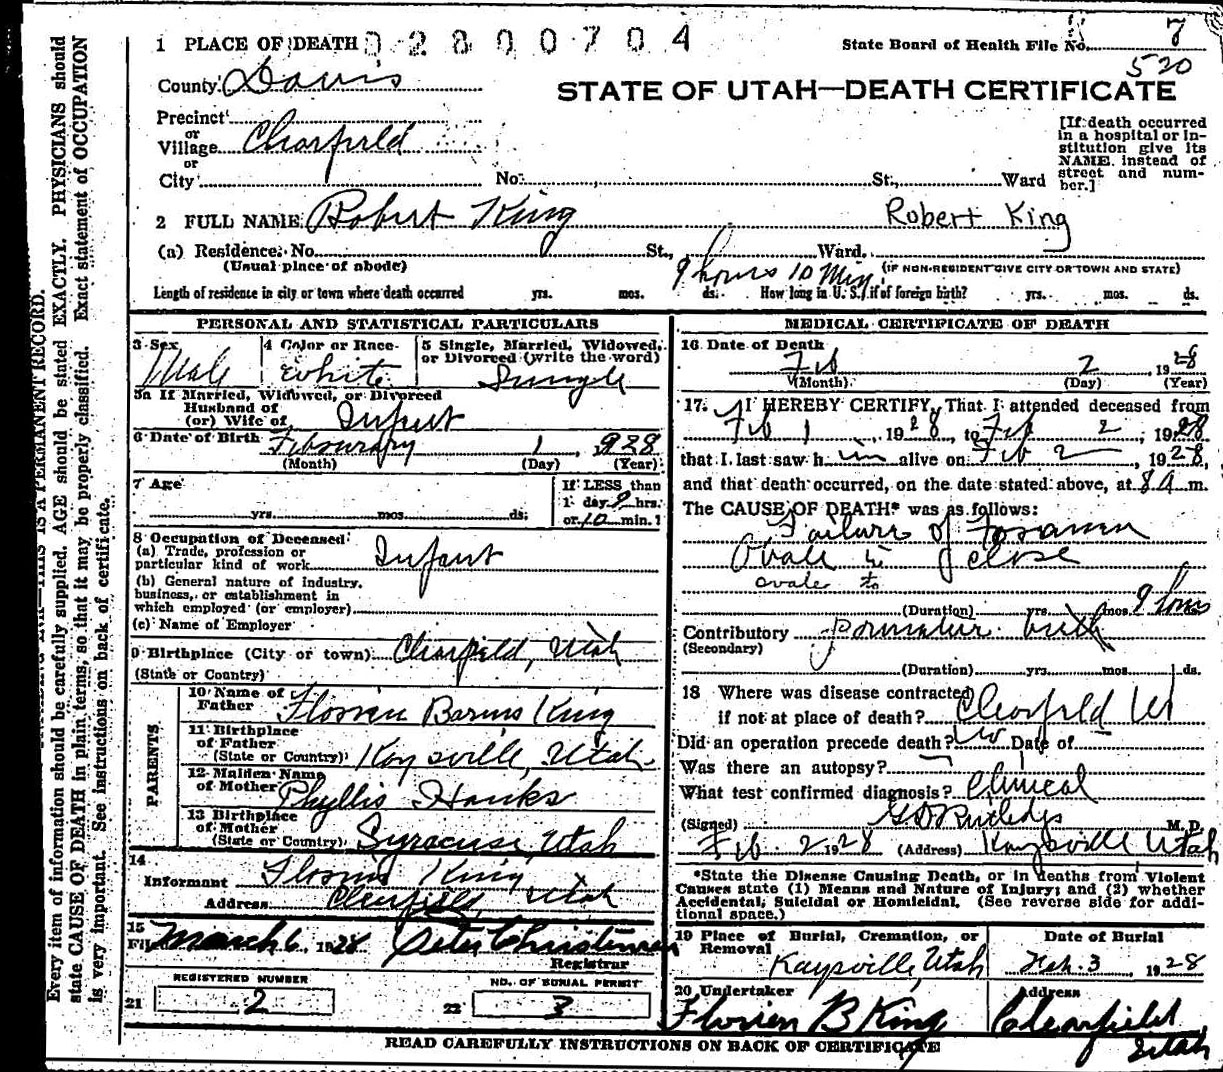 1 PLACE OF DEATH 02800704
State Board of Health File No. 7
520
County Davis
STATE OF UTAH—DEATH CERTIFICATE
Precinct
or
Village Clearfield
or
City No. St., Ward
[If death occurred in a hospital or institution give its NAME instead of street and number.]
2 FULL NAME Robert King Robert King
(a) Residence. No. St., Ward.
(Usual place of abode) 9 hours 10 Min. (IF NON-RESIDENT GIVE CITY OR TOWN AND STATE)
Length of residence in city or town where death occurred yrs. mos. ds. How long in U. S. if of foreign birth? yrs. mos. ds.
PERSONAL AND STATISTICAL PARTICULARS
3 Sex Male
4 Color or Race White
5 Single, Married, Widowed, or Divorced (write the word) Single
5a If Married, Widowed, or Divorced
Husband of
(or) Wife of Infant
6 Date of Birth February 1, 928
(Month) (Day) (Year)
7 Age
yrs. mos. ds.
If LESS than
1 day 9 hrs.
or 10 min.?
8 Occupation of Deceased
(a) Trade, profession or
particular kind of work Infant
(b) General nature of industry,
business, or establishment in
which employed (or employer)
(c) Name of Employer
9 Birthplace (City or town) Clearfield, Utah
(State or Country)
PARENTS
10 Name of
Father Florien Barns King
11 Birthplace
of Father
(State or Country) Kaysville, Utah
12 Maiden Name
of Mother Phyllis Hanks
13 Birthplace
of Mother
(State or Country) Syracuse, Utah
14
Informant King
Address Clearfield, Utah
15
Filed March 6, 1928 Peter Christensen
Registrar
REGISTERED NUMBER
21 2
NO. OF BURIAL PERMIT
22 3
MEDICAL CERTIFICATE OF DEATH
16 Date of Death
Feb 2, 1928
(Month) (Day) (Year)
17. I HEREBY CERTIFY, That I attended deceased from
Feb 1, 1928, to Feb 2, 1928
that I last saw h im alive on Feb 2, 1928,
and that death occurred, on the date stated above, at 8 A m.
The CAUSE OF DEATH* was as follows:
Failure of Foramen
Ovale to close
ovale to
(Duration) yrs. mos. 9 hours
Contributory premature birth
(Secondary)
(Duration) yrs. mos. ds.
18 Where was disease contracted
if not at place of death? Clearfield Ut
Did an operation precede death? no Date of
Was there an autopsy?
What test confirmed diagnosis? Clinical
(Signed) G D Rutledge M. D.
Feb. 2 1928 (Address) Kaysville Utah
*State the Disease Causing Death, or in deaths from Violent
Causes state (1) Means and Nature of Injury; and (2) whether
Accidental, Suicidal or Homicidal. (See reverse side for addi-
tional space.)
19 Place of Burial, Cremation, or
Removal
Kaysville, Utah
Date of Burial
Feb. 3, 1928
20 Undertaker
Florien B King
Address
Clearfield
Utah
READ CAREFULLY INSTRUCTIONS ON BACK OF CERTIFICATE
IS A PERMANENT RECORD.
Every item of information should be carefully supplied. AGE should be stated EXACTLY. PHYSICIANS should
state CAUSE OF DEATH in plain terms, so that it may be properly classified. Exact statement of OCCUPATION
is very important. See instructions on back of certificate.